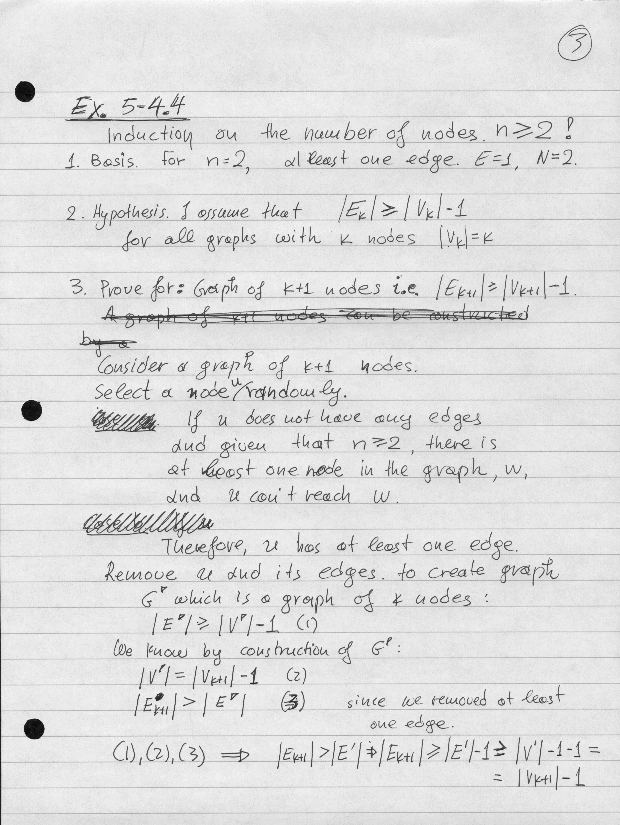 3
Ex. 5-4.4
Induction on the number of nodes. n≥2 !
1. Basis. For n=2, at least one edge. E=1, N=2.
2. Hypothesis. I assume that |Ek| ≥ |Vk|-1
for all graphs with k nodes |Vk|=k
3. Prove for: Graph of k+1 nodes i.e. |Ek+1| ≥ |Vk+1|-1.
A graph of k+1 nodes can be constructed
by a
Consider a graph of k+1 nodes.
Select a node u randomly.
If u does not have any edges
and given that n≥2, there is
at least one node in the graph, w,
and u can't reach w.
Therefore, u has at least one edge.
Remove u and its edges. to create graph
G' which is a graph of k nodes:
|E'| ≥ |V'|-1 (1)
We know by construction of G':
|V'| = |Vk+1|-1 (2)
|Ek+1| > |E'| (3) since we removed at least
one edge.
(1),(2),(3) ⇒ |Ek+1| > |E'| ⇒ |Ek+1| ≥ |E'|-1 ≥ |V'|-1-1 =
= |Vk+1|-1